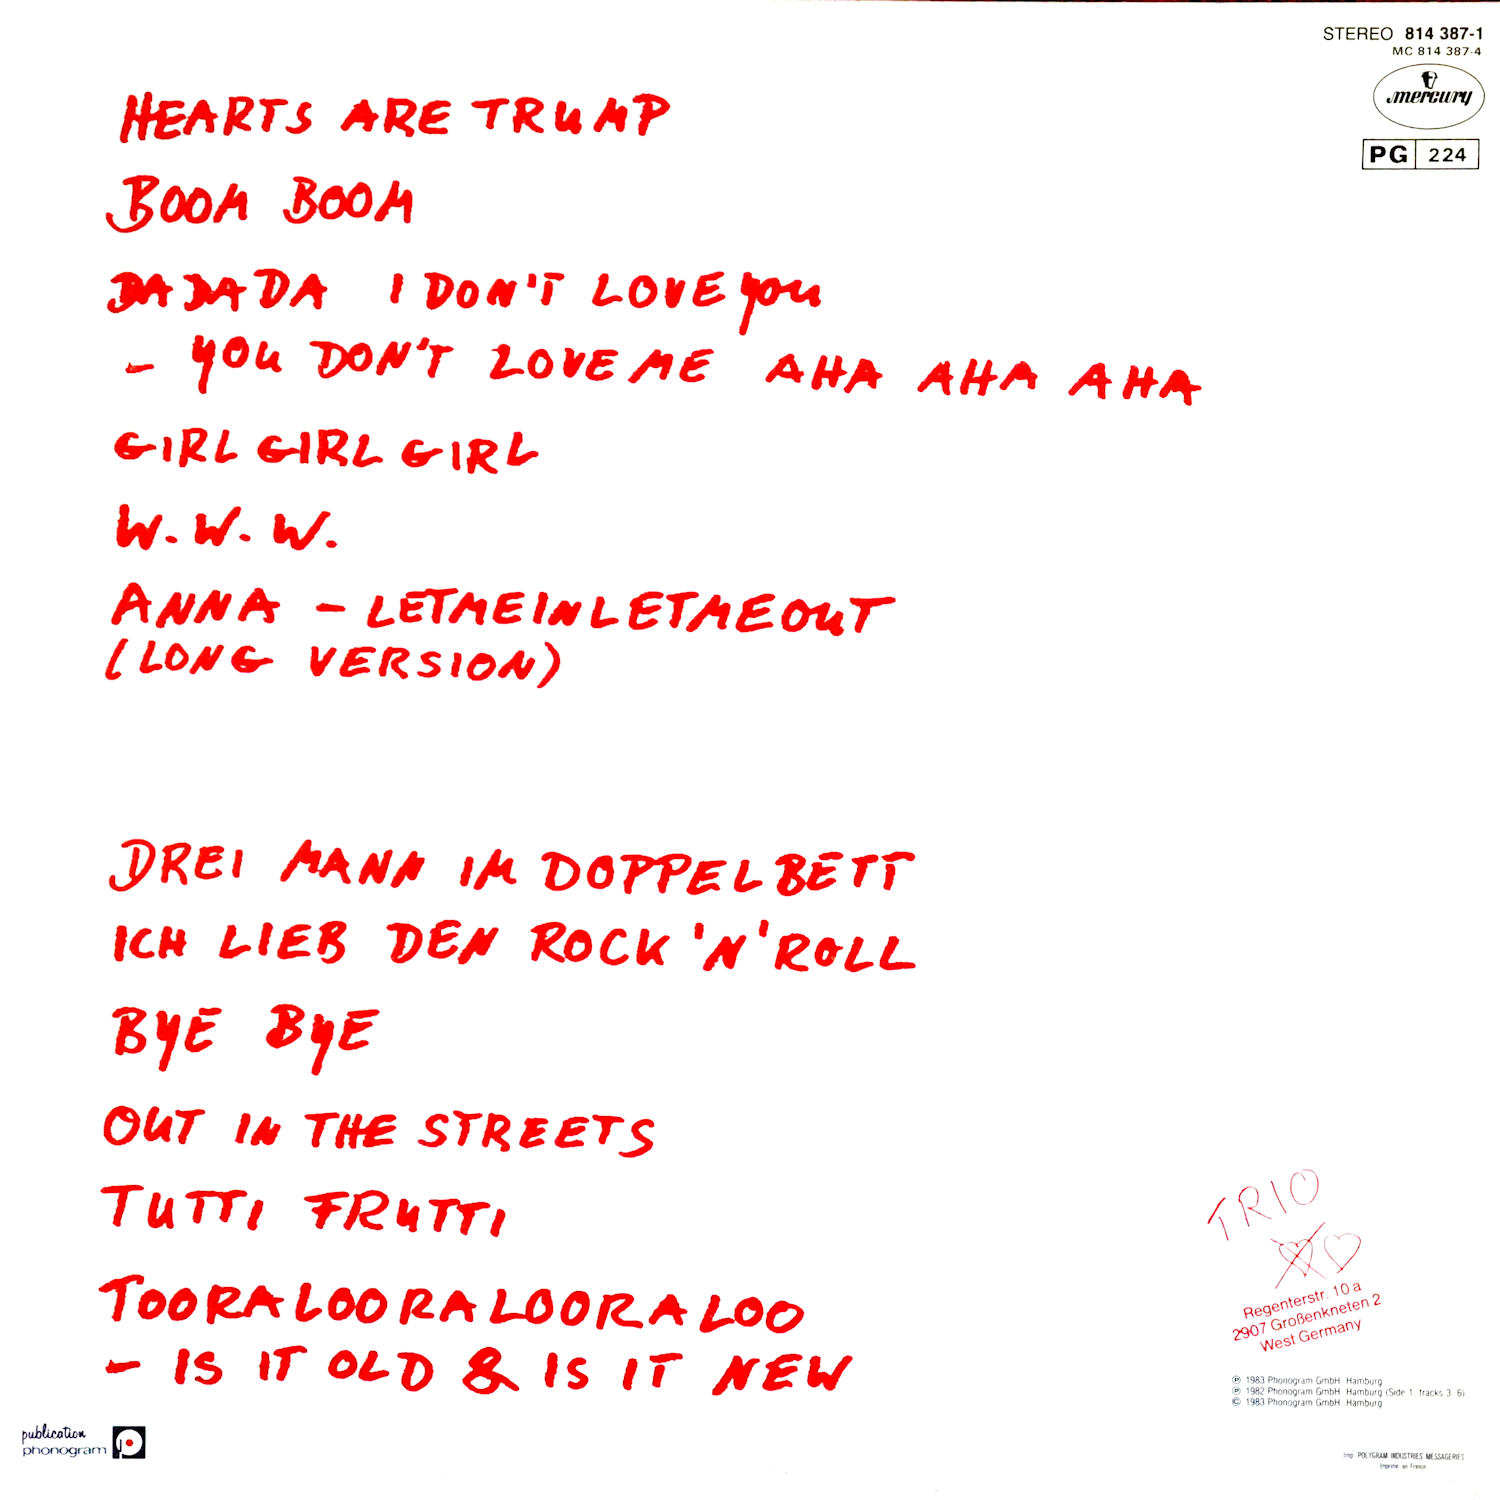 STEREO 814 387-1
MC 814 387-4
mercury
PG 224
HEARTS ARE TRUMP
BOOM BOOM
DA DA DA I DON'T LOVE you
- YOU DON'T LOVE ME AHA AHA AHA
GIRL GIRL GIRL
W. W. W.
ANNA - LETMEINLETMEOUT
(LONG VERSION)
DREI MANN IM DOPPELBETT
ICH LIEB DEN ROCK 'N' ROLL
BYE BYE
OUT IN THE STREETS
TUTTI FRUTTI
TOORALOORALOORALOO
- IS IT OLD & IS IT NEW
TRIO
Regenterstr. 10 a
2907 Großenkneten 2
West Germany
℗ 1983 Phonogram GmbH Hamburg
℗ 1982 Phonogram GmbH Hamburg (Side 1 tracks 3 6)
© 1983 Phonogram GmbH Hamburg
publication
phonogram
Imp. POLYGRAM INDUSTRIES MESSAGERIES
Imprimé en France